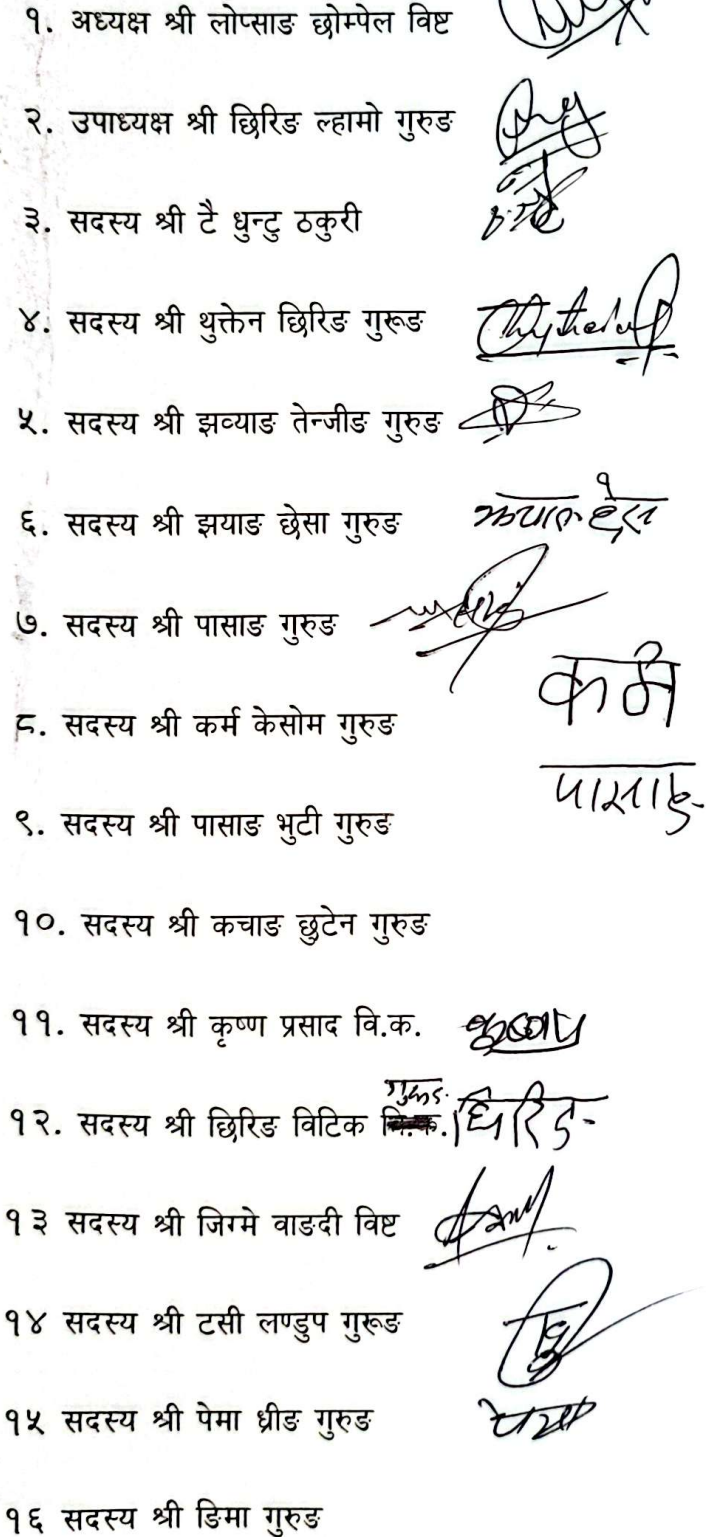 १. अध्यक्ष श्री लोप्साङ छोम्पेल विष्ट
२. उपाध्यक्ष श्री छिरिङ ल्हामो गुरुङ
३. सदस्य श्री टै धुन्टु ठकुरी
४. सदस्य श्री थुक्तेन छिरिङ गुरूङ
५. सदस्य श्री झव्याङ तेन्जीङ गुरुङ
६. सदस्य श्री झयाङ छेसा गुरुङ
७. सदस्य श्री पासाङ गुरुङ
८. सदस्य श्री कर्म केसोम गुरुङ कर्म
९. सदस्य श्री पासाङ भुटी गुरुङ पासाङ
१०. सदस्य श्री कचाङ छुटेन गुरुङ
११. सदस्य श्री कृष्ण प्रसाद वि.क.
१२. सदस्य श्री छिरिङ विटिक गुरुङ छिरिङ
१३ सदस्य श्री जिग्मे वाङदी विष्ट
१४ सदस्य श्री टसी लण्डुप गुरूङ
१५ सदस्य श्री पेमा ध्रीङ गुरुङ पेमा
१६ सदस्य श्री ङिमा गुरुङ